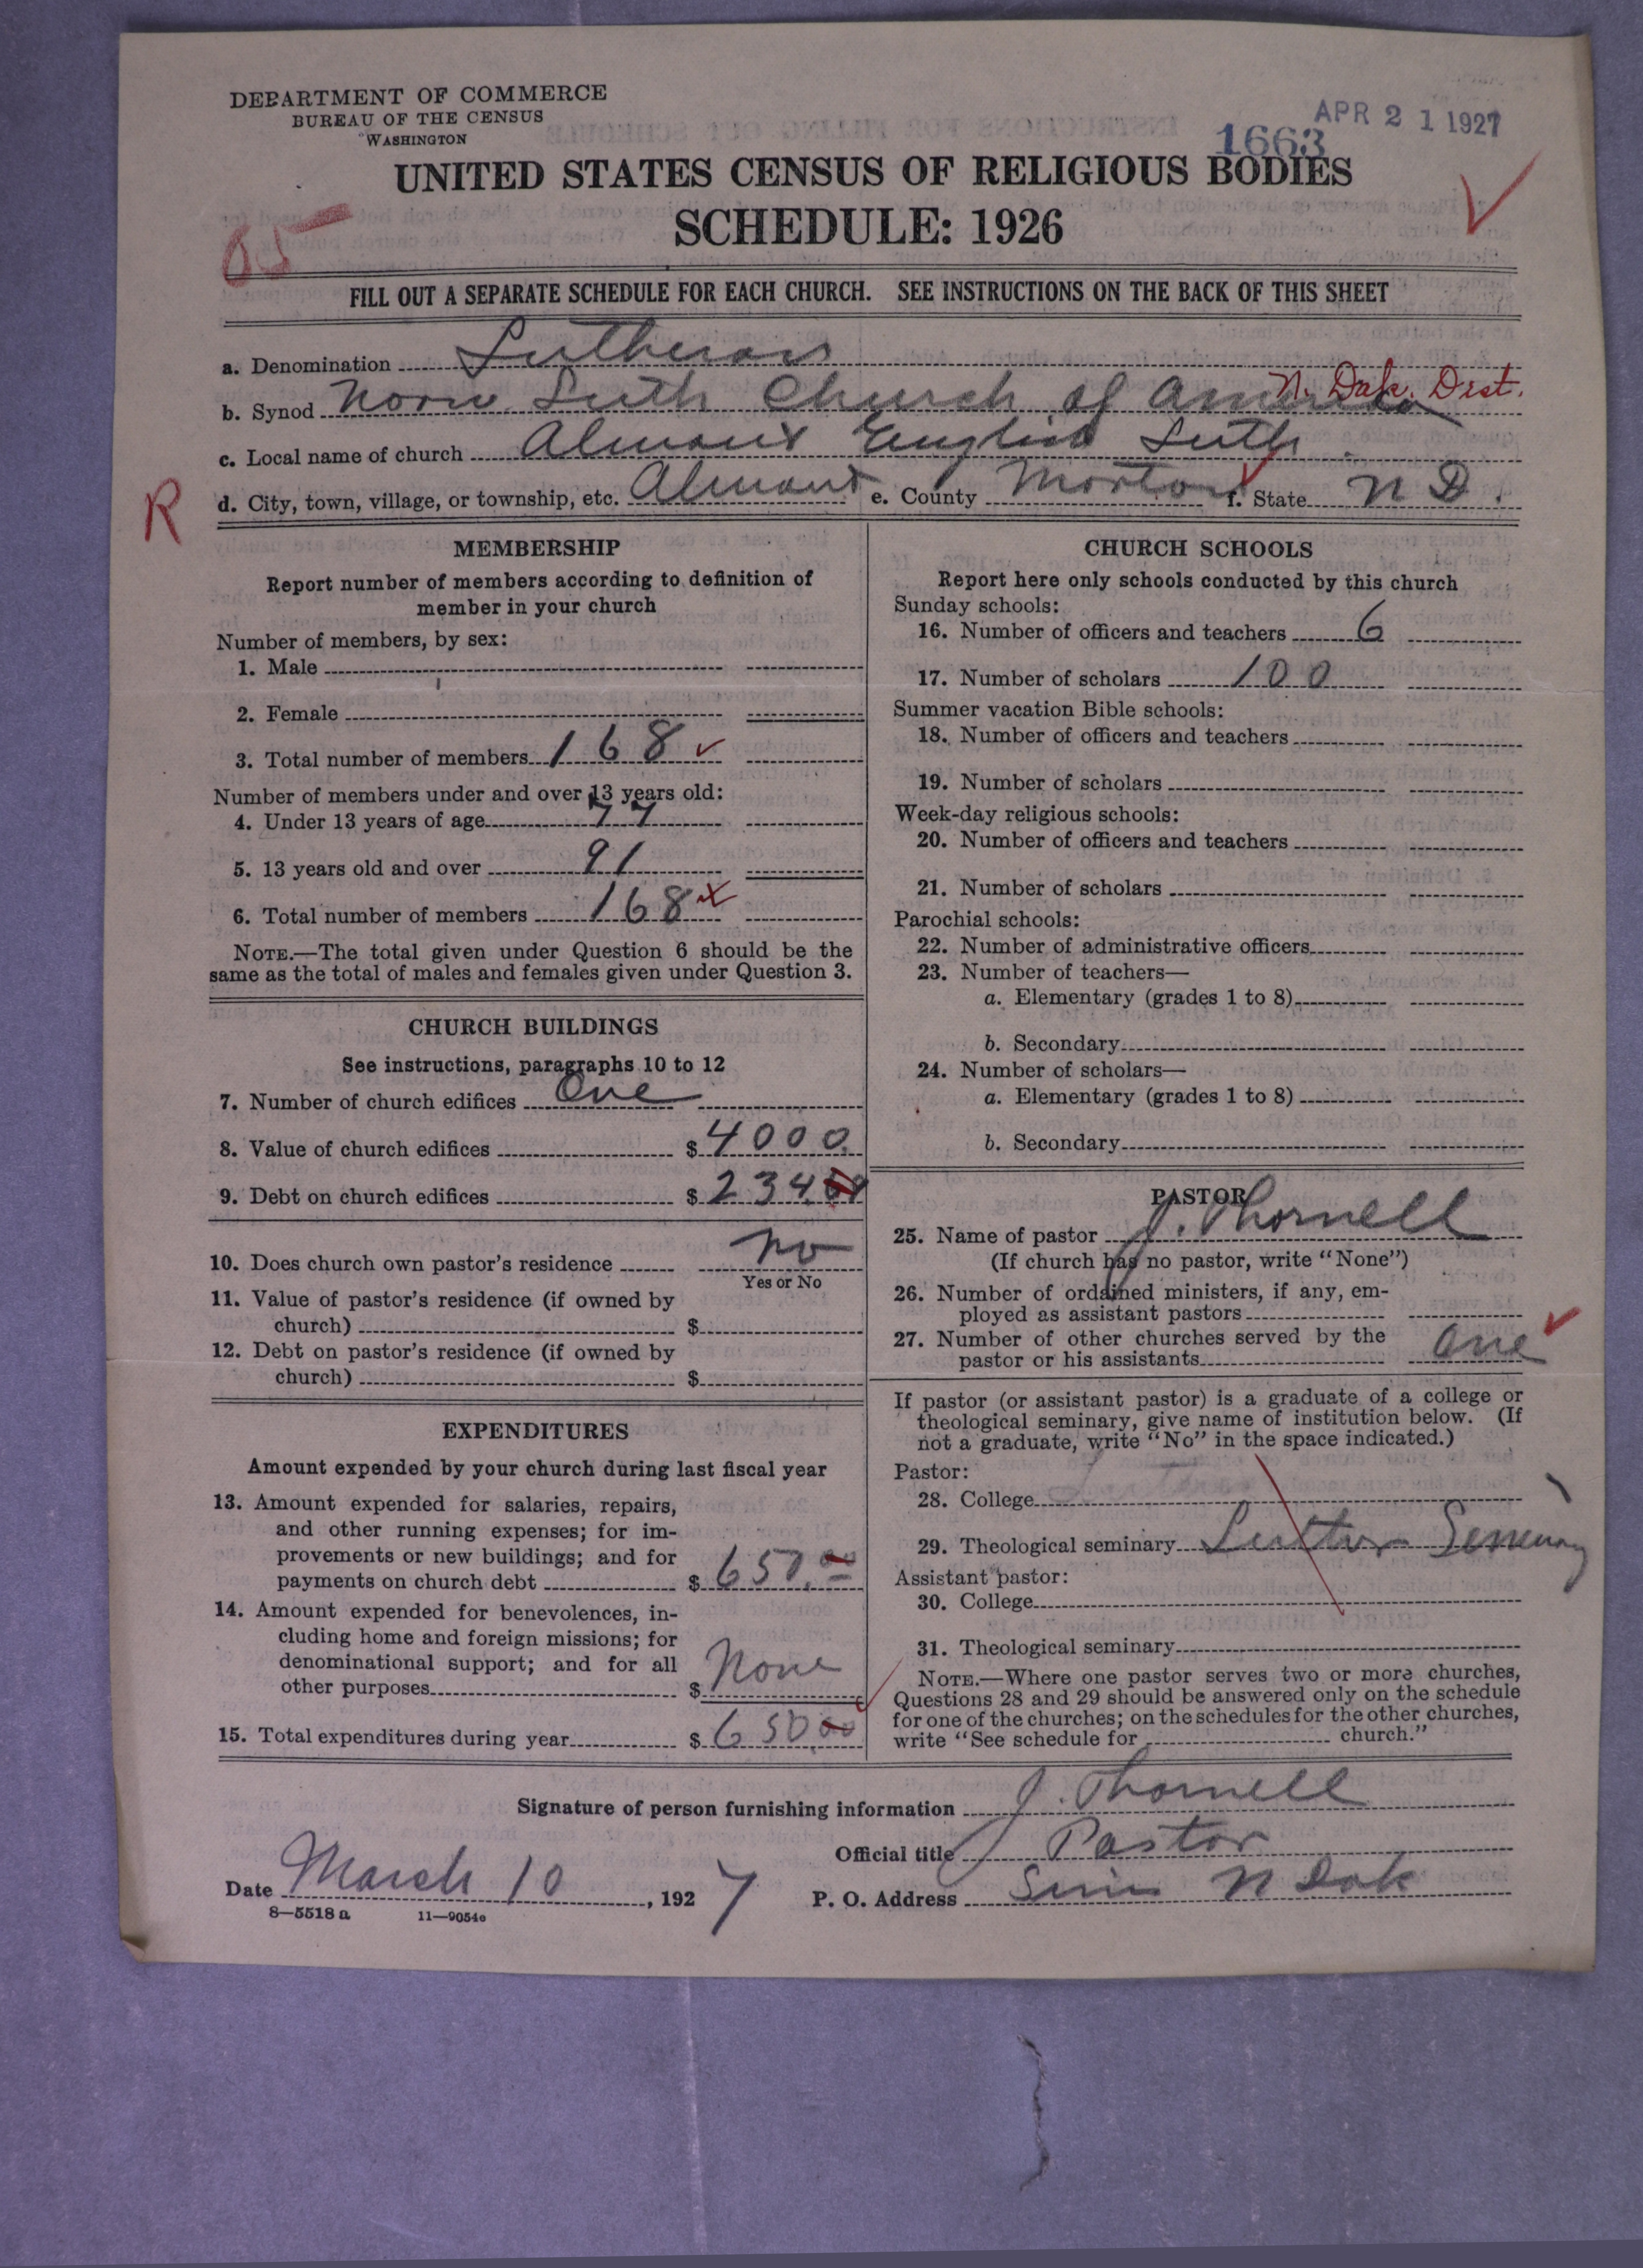 DEPARTMENT OF COMMERCE
BUREAU OF THE CENSUS
WASHINGTON
APR 21 1927
1663
UNITED STATES CENSUS OF RELIGIOUS BODIES
SCHEDULE: 1926
05
FILL OUT A SEPARATE SCHEDULE FOR EACH CHURCH. SEE INSTRUCTIONS ON THE BACK OF THIS SHEET
a. Denomination Lutheran
N. Dak. Dist.
b. Synod Norw Luth Church of America
c. Local name of church Almont English Luth.
R
d. City, town, village, or township, etc. Almont e. County Morton f. State N D.
MEMBERSHIP
Report number of members according to definition of
member in your church
Number of members, by sex:
1. Male
2. Female
3. Total number of members 168
Number of members under and over 13 years old:
4. Under 13 years of age 77
5. 13 years old and over 91
6. Total number of members 168
NOTE.—The total given under Question 6 should be the
same as the total of males and females given under Question 3.
CHURCH BUILDINGS
See instructions, paragraphs 10 to 12
7. Number of church edifices One
8. Value of church edifices $ 4000.
9. Debt on church edifices $ 234
10. Does church own pastor's residence No
Yes or No
11. Value of pastor's residence (if owned by
church) $
12. Debt on pastor's residence (if owned by
church) $
EXPENDITURES
Amount expended by your church during last fiscal year
13. Amount expended for salaries, repairs,
and other running expenses; for im-
provements or new buildings; and for
payments on church debt $ 650.00
14. Amount expended for benevolences, in-
cluding home and foreign missions; for
denominational support; and for all
other purposes $ None
15. Total expenditures during year $ 650.00
CHURCH SCHOOLS
Report here only schools conducted by this church
Sunday schools:
16. Number of officers and teachers 6
17. Number of scholars 100
Summer vacation Bible schools:
18. Number of officers and teachers
19. Number of scholars
Week-day religious schools:
20. Number of officers and teachers
21. Number of scholars
Parochial schools:
22. Number of administrative officers
23. Number of teachers—
a. Elementary (grades 1 to 8)
b. Secondary
24. Number of scholars—
a. Elementary (grades 1 to 8)
b. Secondary
PASTOR
25. Name of pastor J. Thornell
(If church has no pastor, write "None")
26. Number of ordained ministers, if any, em-
ployed as assistant pastors
27. Number of other churches served by the
pastor or his assistants One
If pastor (or assistant pastor) is a graduate of a college or
theological seminary, give name of institution below. (If
not a graduate, write "No" in the space indicated.)
Pastor:
28. College
29. Theological seminary Luther Seminary
Assistant pastor:
30. College
31. Theological seminary
NOTE.—Where one pastor serves two or more churches,
Questions 28 and 29 should be answered only on the schedule
for one of the churches; on the schedules for the other churches,
write "See schedule for church."
Signature of person furnishing information J. Thornell
Official title Pastor
Date March 10, 1927
P. O. Address Sims N Dak
8—5518 a 11—9054e